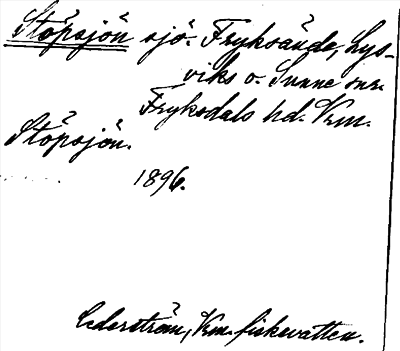 Stöpsjön sjö. Fryksände, Lys-
viks o. Sunne snr.
Fryksdals hd. Vrm.
Stöpsjön.
1896.
Cederström, Vrm. fiskevatten.